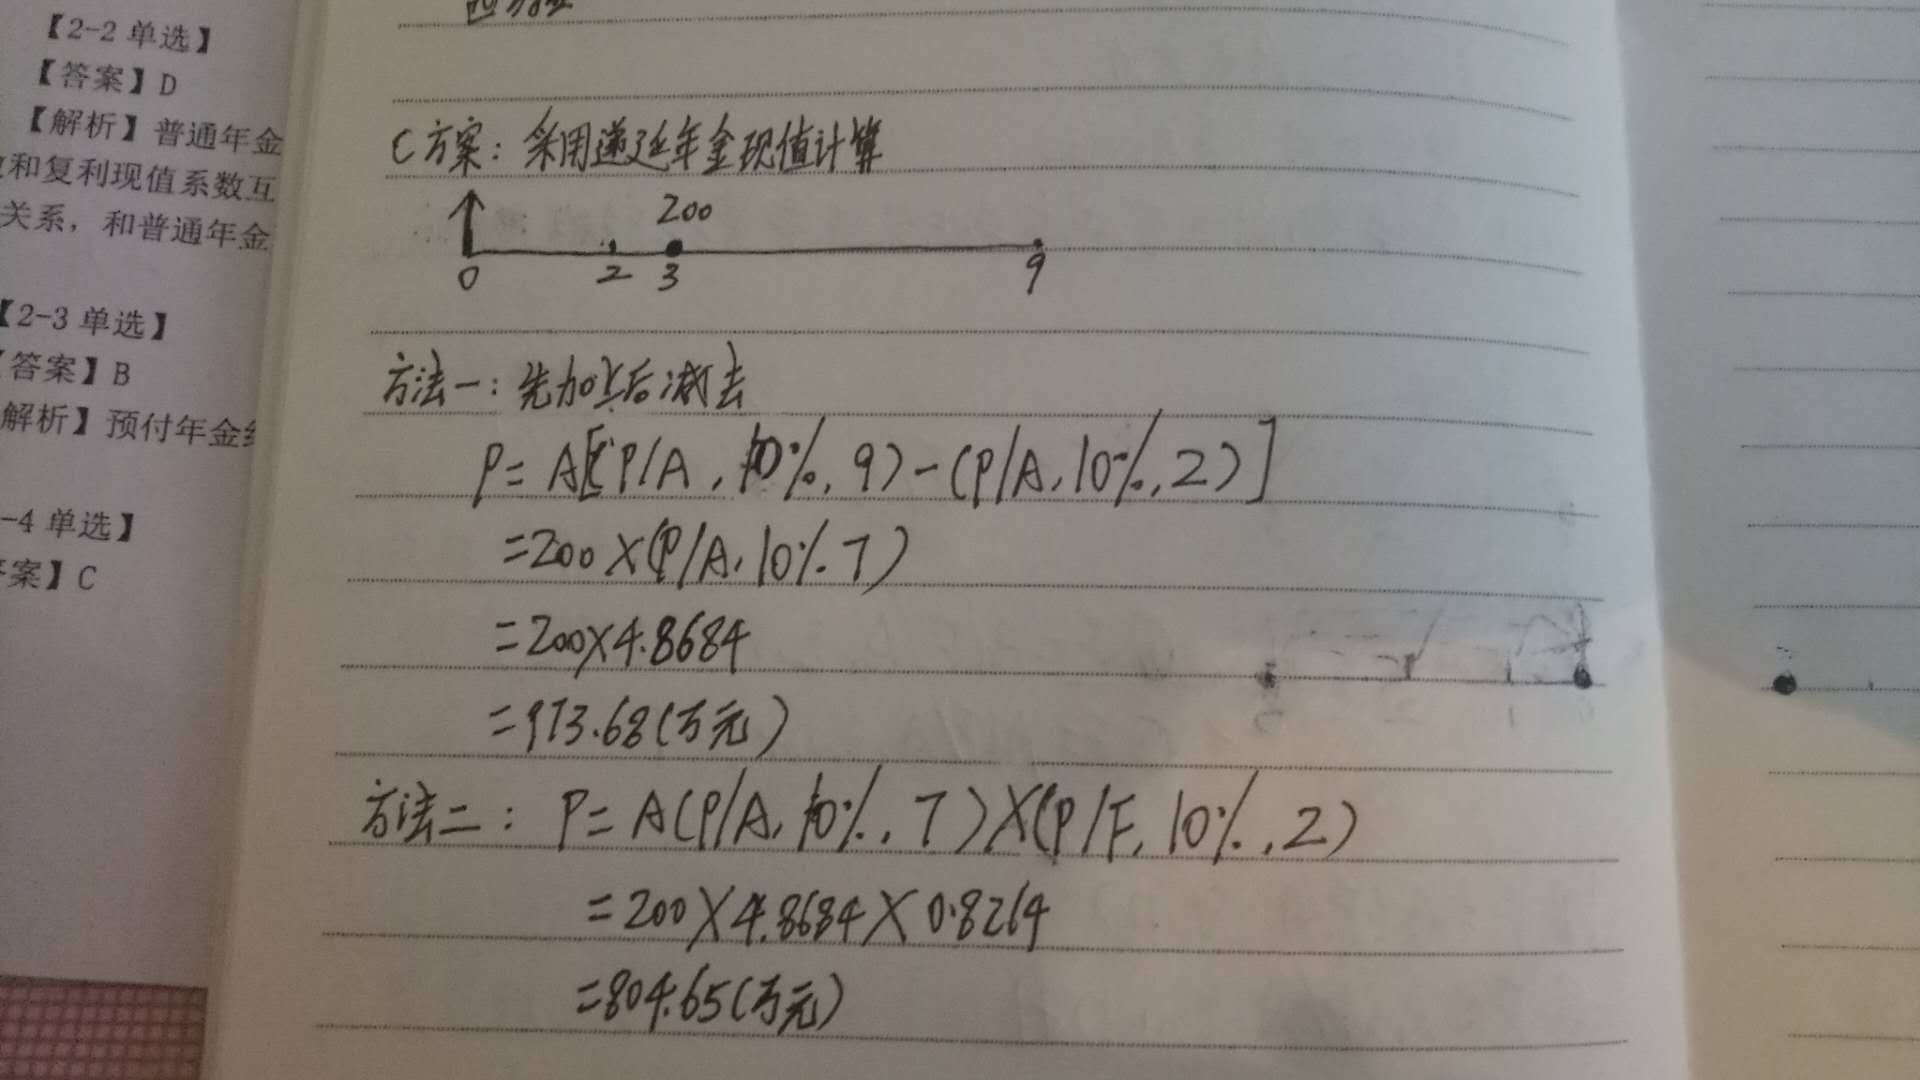 【2-2 单选】
【答案】D
【解析】普通年金
和复利现值系数互
关系，和普通年金
【2-3 单选】
答案】B
解析】预付年金
-4 单选】
案】C
C方案：采用递延年金现值计算
200
0 2 3 9
方法一：先加上后减去
P=A[(P/A,10%,9)-(P/A,10%,2)]
=200×(P/A,10%.7)
=200×4.8684
=973.68(万元)
方法二：P=A(P/A,10%,7)×(P/F,10%,2)
=200×4.8684×0.8264
=804.65(万元)